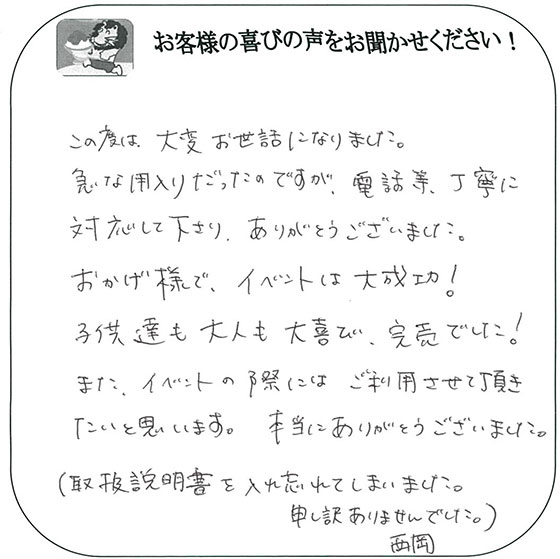 お客様の喜びの声をお聞かせください！
この度は、大変お世話になりました。
急な用入りだったのですが、電話等、丁寧に
対応して下さり、ありがとうございました。
おかげ様で、イベントは大成功！
子供達も大人も大喜び、完売でした！
また、イベントの際にはご利用させて頂き
たいと思います。本当にありがとうございました。
(取扱説明書を入れ忘れてしまいました。
申し訳ありませんでした。)
西岡